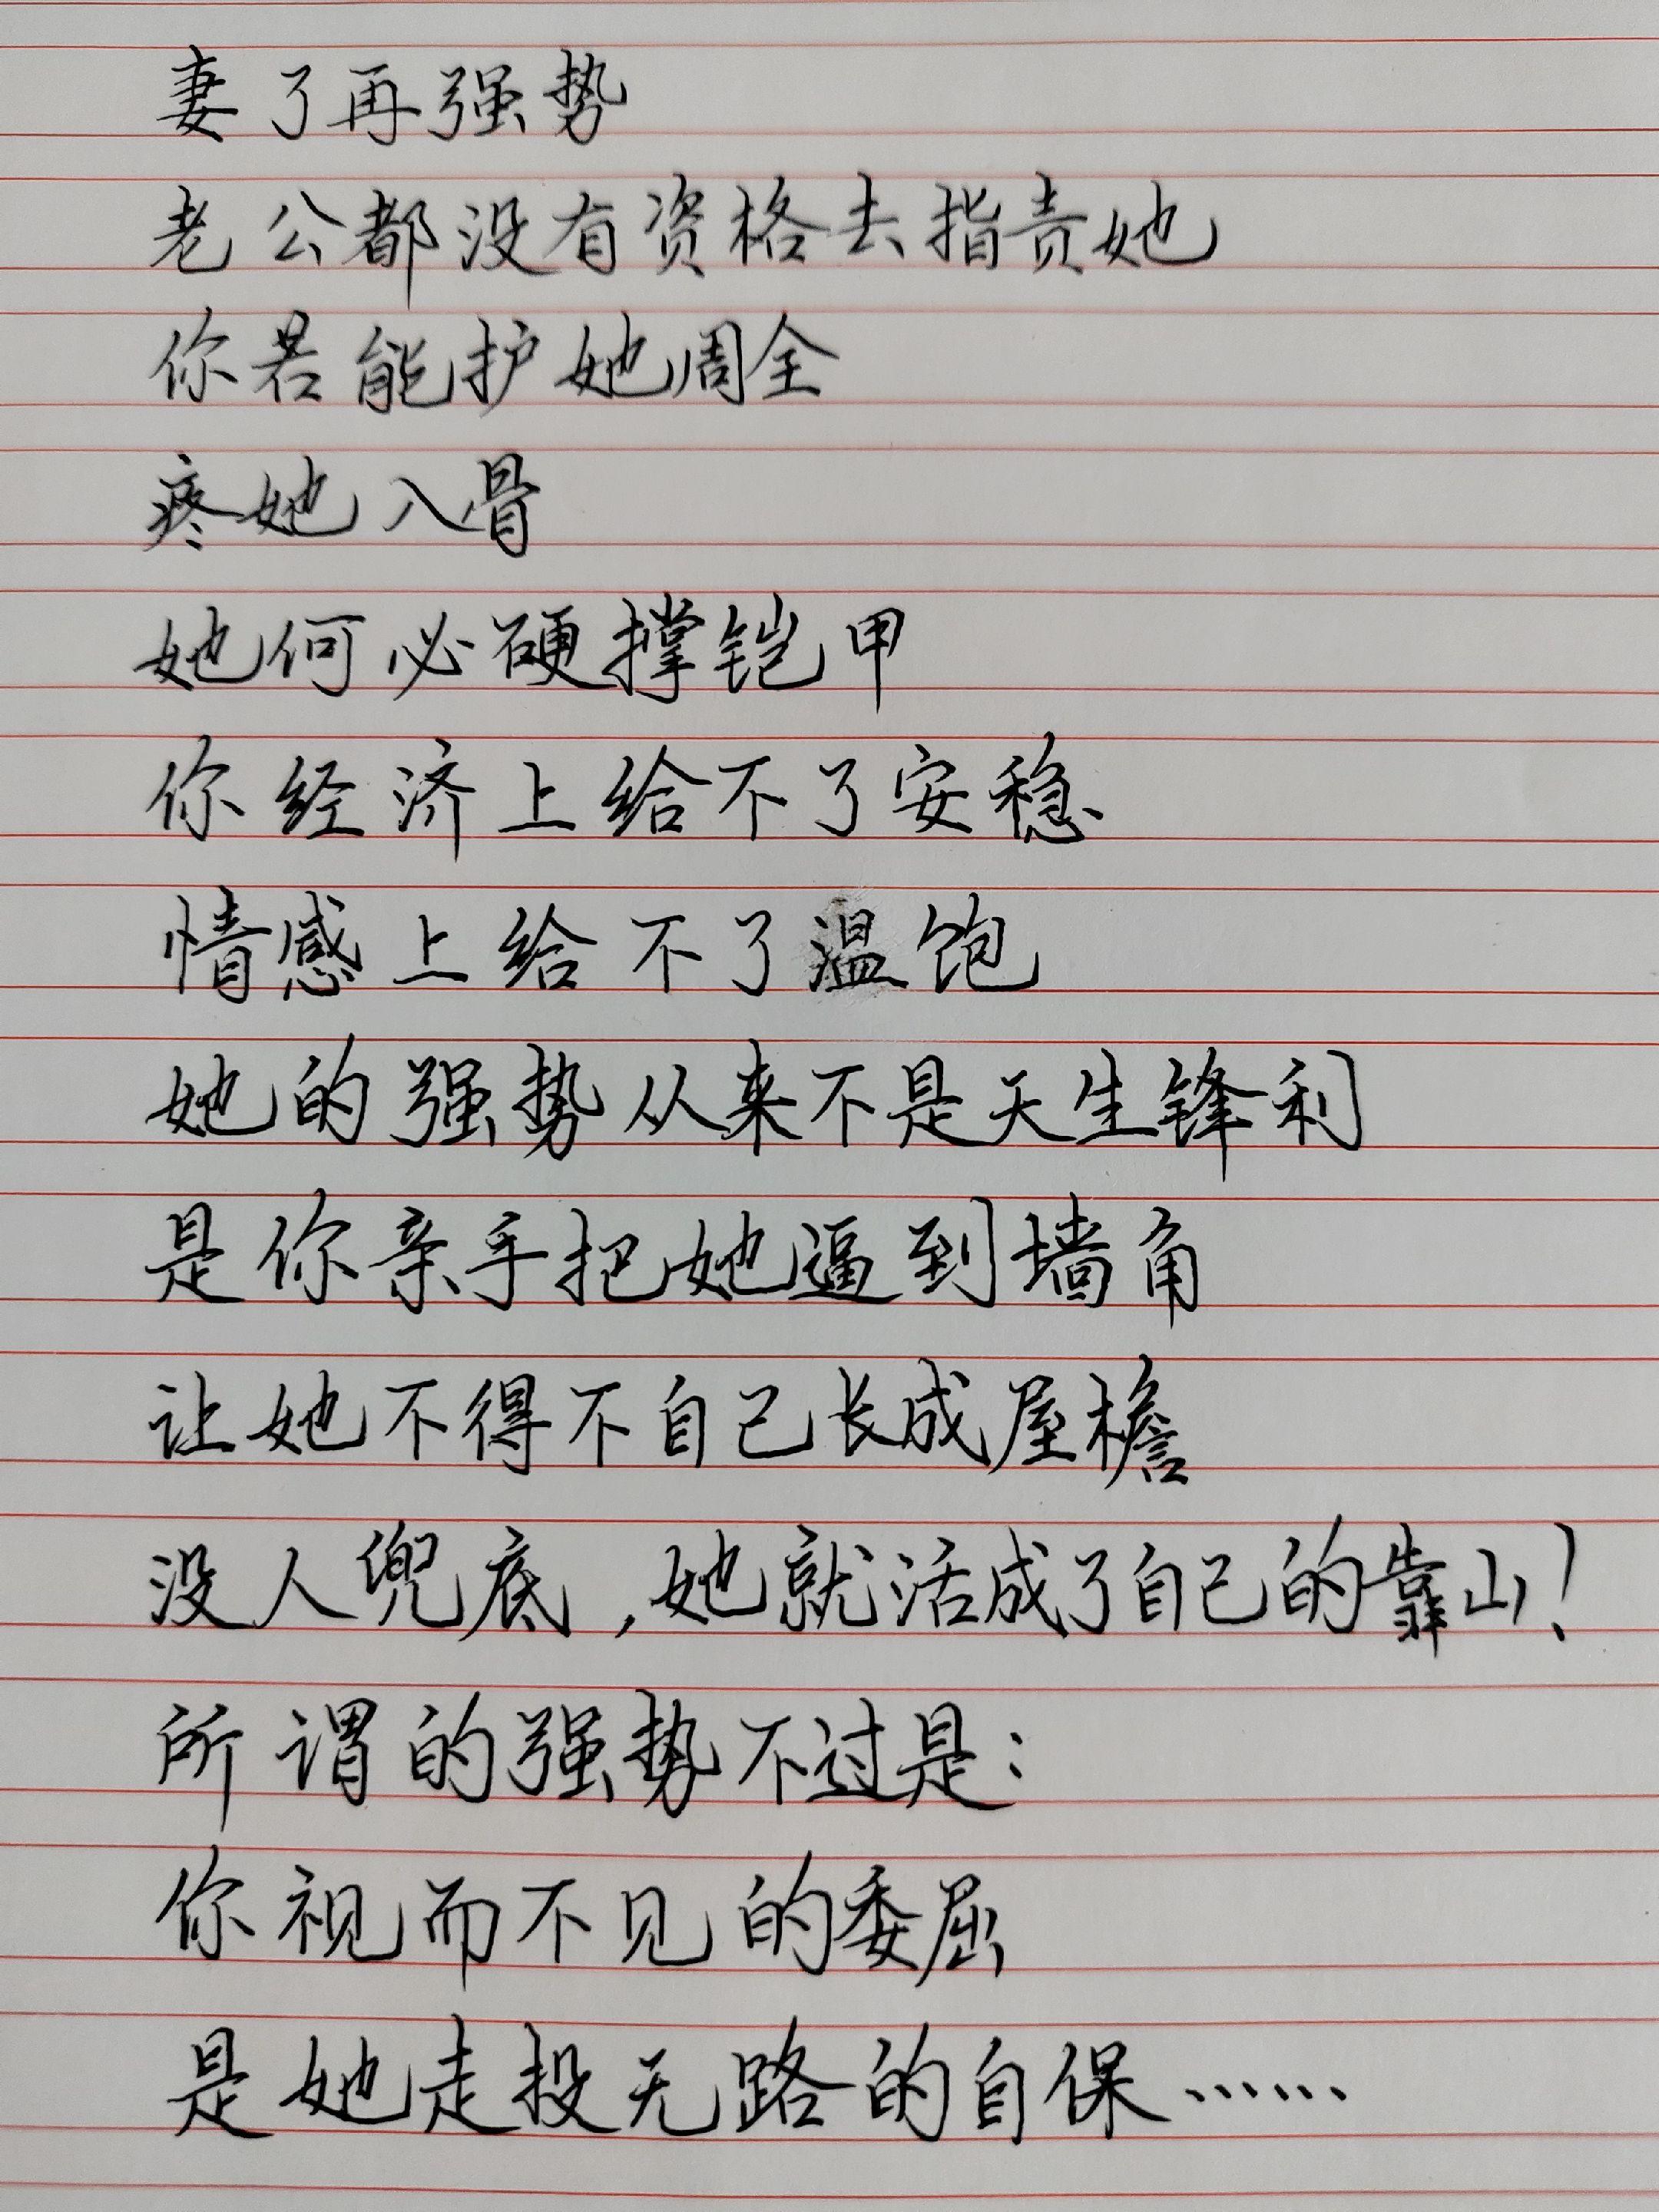 妻了再强势
老公都没有资格去指责她
你若能护她周全
疼她入骨
她何必硬撑铠甲
你经济上给不了安稳
情感上给不了温饱
她的强势从来不是天生锋利
是你亲手把她逼到墙角
让她不得不自己长成屋檐
没人兜底,她就活成了自己的靠山!
所谓的强势不过是:
你视而不见的委屈
是她走投无路的自保……